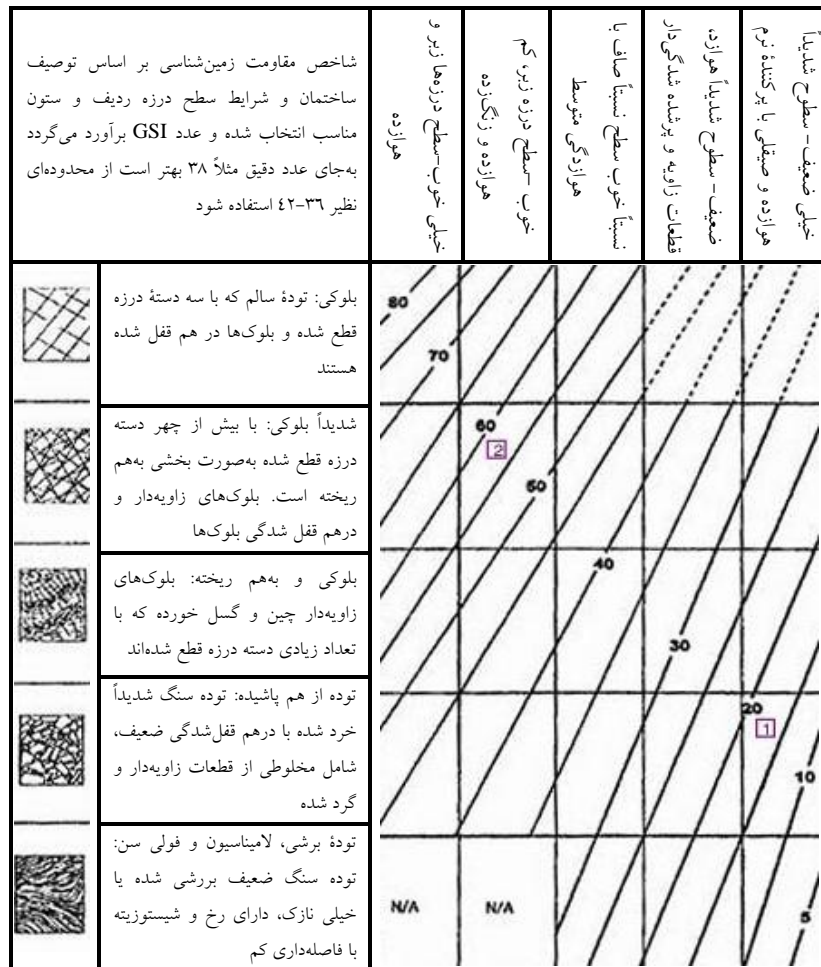 شاخص مقاومت زمین‌شناسی بر اساس توصیف
ساختمان و شرایط سطح درزه ردیف و ستون
مناسب انتخاب شده و عدد GSI برآورد می‌گردد
به‌جای عدد دقیق مثلاً ۳۸ بهتر است از محدوده‌ای
نظیر ۳۶-۴۲ استفاده شود
خیلی خوب-سطح درزه‌ها زبر و
هوازده
خوب-سطح درزه زبر، کم
هوازده و زنگ‌زده
نسبتاً خوب سطح نسبتاً صاف با
هوازدگی متوسط
ضعیف- سطوح شدیداً هوازد،
قطعات زاویه و پرشده شدگی‌دار
خیلی ضعیف- سطوح شدیداً
هوازده و صیقلی با پرکنندهٔ نرم
بلوکی: تودهٔ سالم که با سه دستهٔ درزه
قطع شده و بلوک‌ها در هم قفل شده
هستند
شدیداً بلوکی: با بیش از چهر دسته
درزه قطع شده به‌صورت بخشی به‌هم
ریخته است. بلوک‌های زاویه‌دار و
درهم قفل شدگی بلوک‌ها
بلوکی و به‌هم ریخته: بلوک‌های
زاویه‌دار چین و گسل خورده که با
تعداد زیادی دسته درزه قطع شده‌اند
توده از هم پاشیده: توده سنگ شدیداً
خرد شده با درهم قفل‌شدگی ضعیف،
شامل مخلوطی از قطعات زاویه‌دار و
گرد شده
تودهٔ برشی، لامیناسیون و فولی سن:
توده سنگ ضعیف بررشی شده یا
خیلی نازک، دارای رخ و شیستوزیته
با فاصله‌داری کم
80
70
60
2
50
40
30
20
1
10
N/A
N/A
5